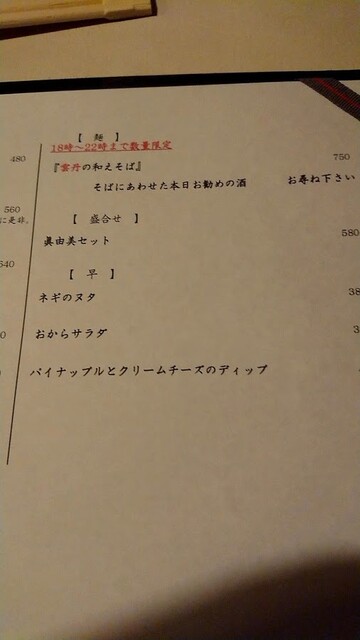 【 麺 】
18時～22時まで数量限定
480
『雲丹の和えそば』 750
そばにあわせた本日お勧めの酒 お尋ね下さい
560
に是非。
【 盛合せ 】
眞由美セット 580
540
【 早 】
ネギのヌタ 38
おからサラダ 3
パイナップルとクリームチーズのディップ